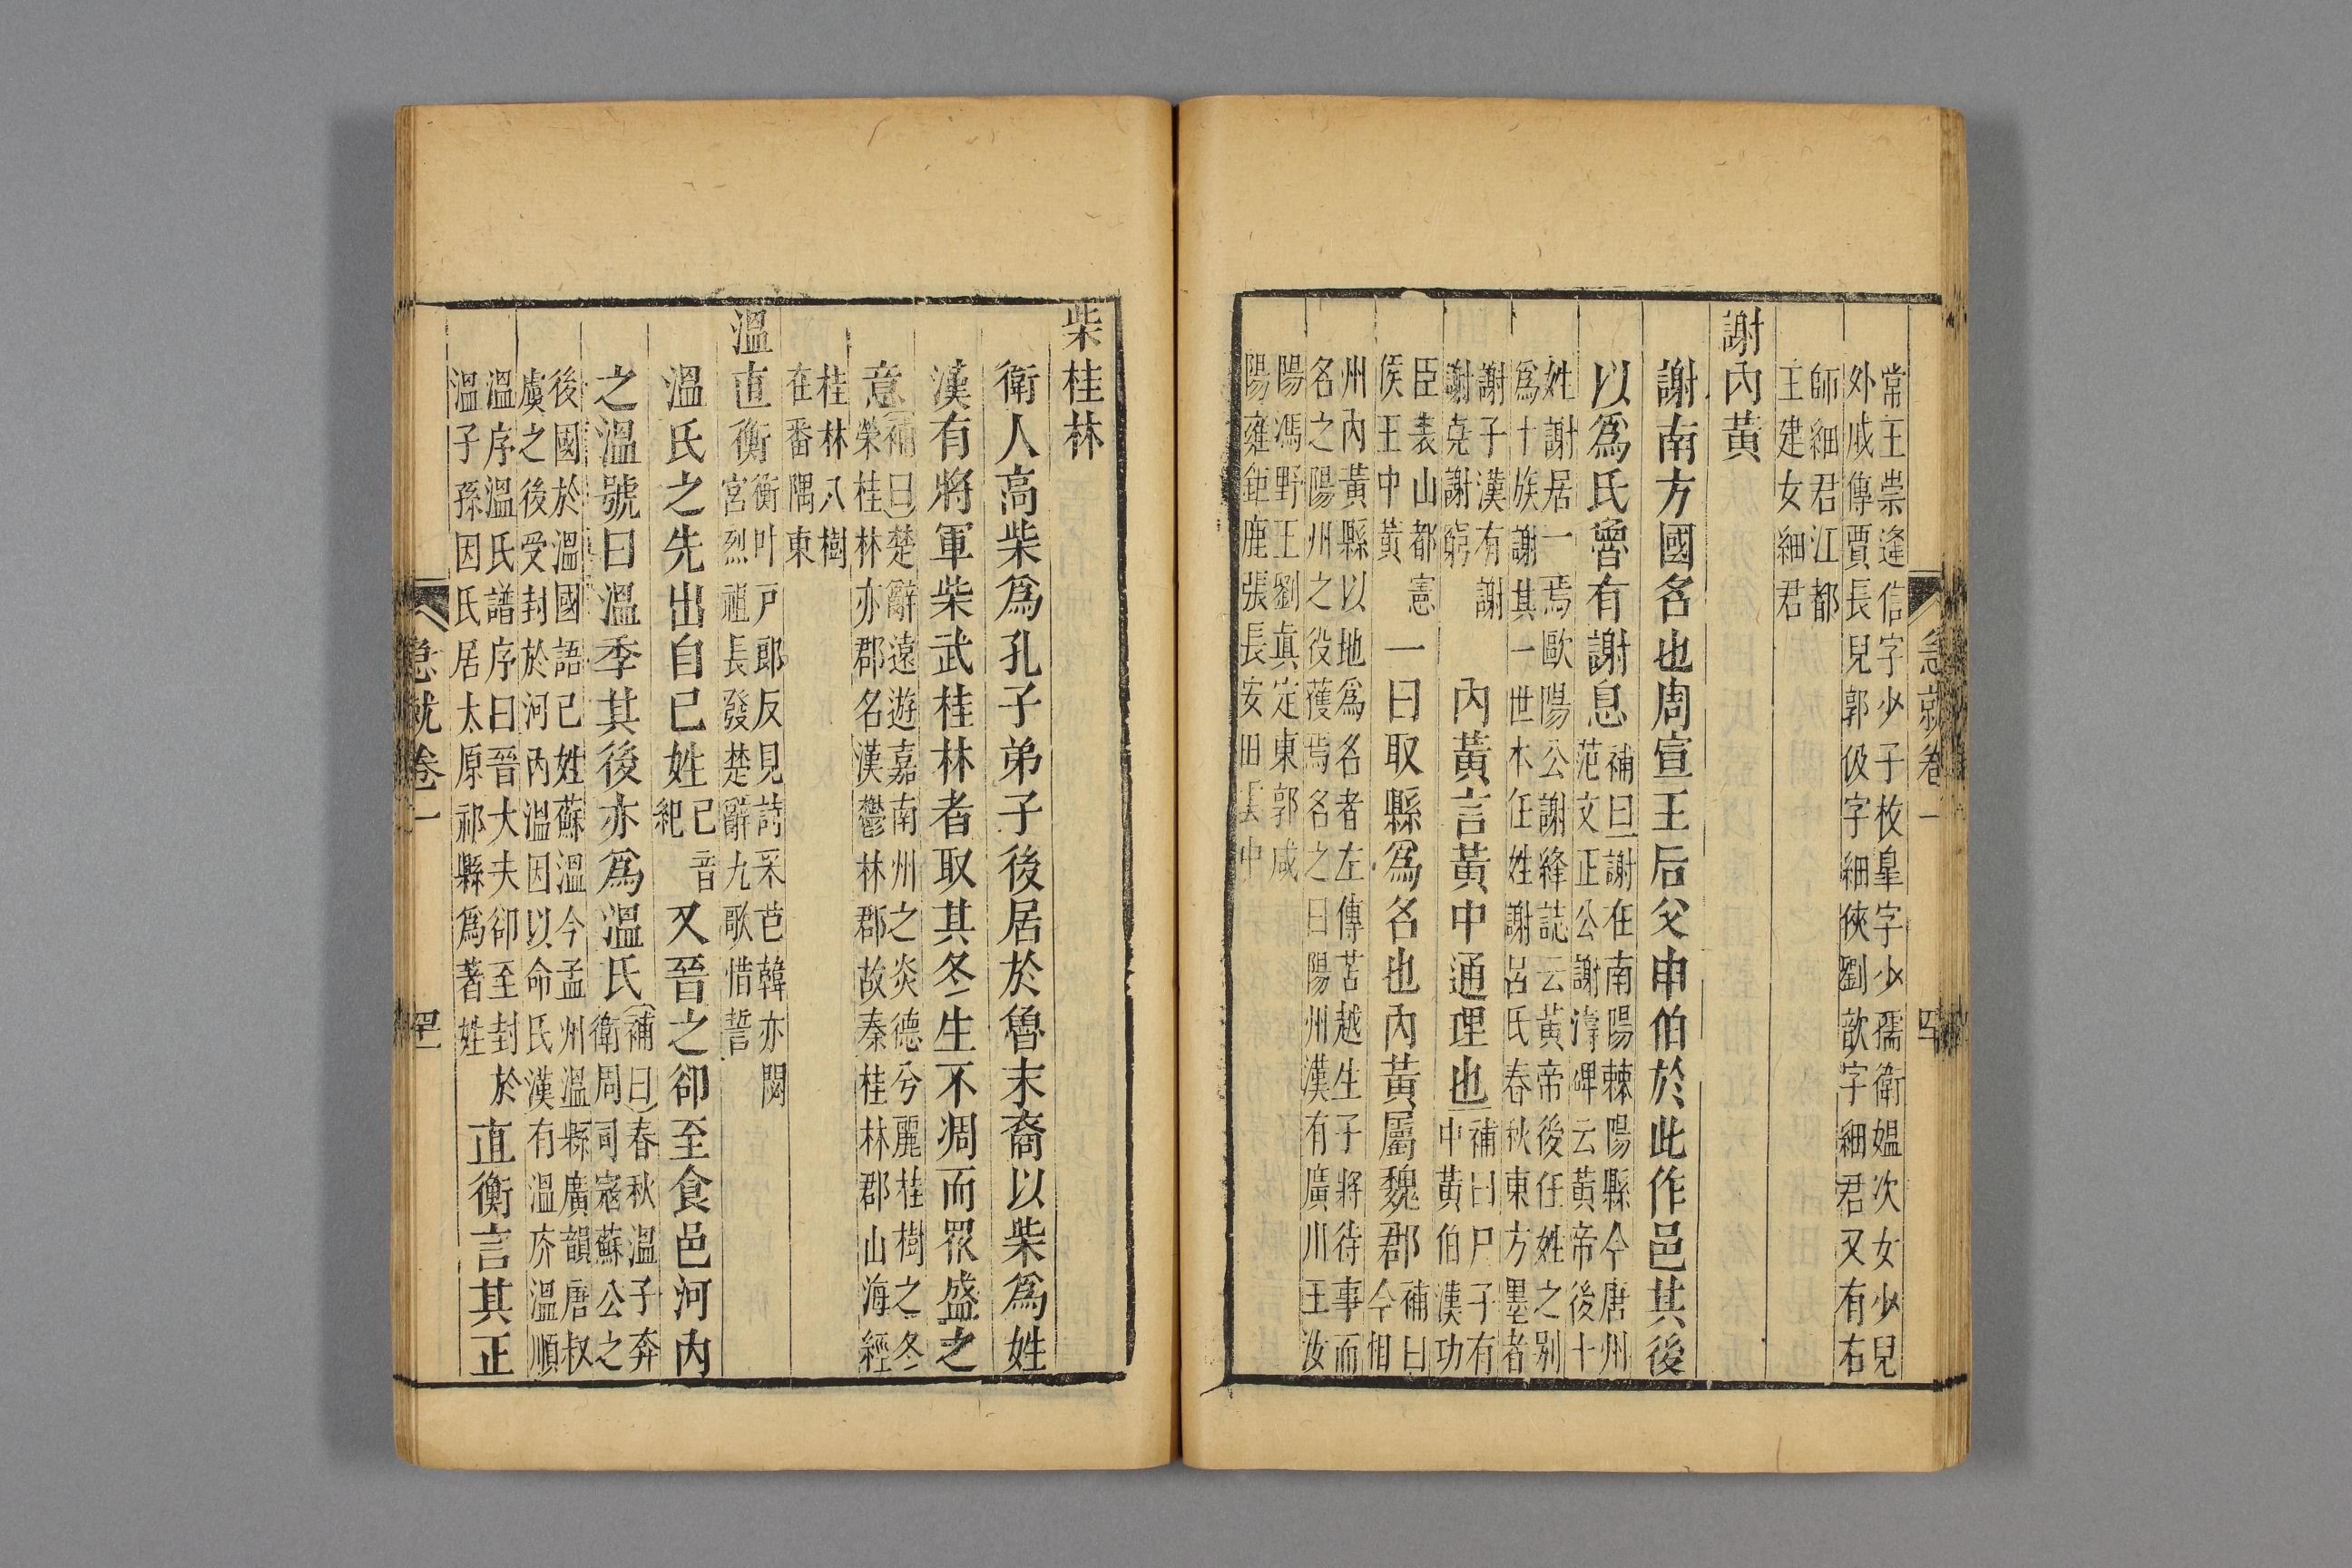 急就卷一
四
常王崇逢信字少子枚臯字少孺衛媼次女少兒
外戚傳賈長兒郭伋字細侯劉歆字細君又有右
師細君江都
王建女細君
謝內黃
謝南方國名也周宣王后父申伯於此作邑其後
以爲氏魯有謝息
補曰謝在南陽棘陽縣今唐州
范文正公謝濤碑云黃帝後十
姓謝居一焉歐陽公謝絳誌云黃帝後任姓之別
爲十族謝其一世本任姓謝呂氏春秋東方墨者
謝子漢有謝
謝堯謝窮
內黃言黃中通理也
補曰尸子有
中黃伯漢功
臣表山都憲
侯王中黃
一曰取縣爲名也內黃屬魏郡
補曰
今相
州內黃縣以地爲名者左傳苫越生子將待事而
名之陽州之役獲焉名之曰陽州漢有廣川王汝
陽馮野王劉眞定東郭咸
陽雍鉅鹿張長安田雲中
柴桂林
衛人高柴爲孔子弟子後居於魯末裔以柴爲姓
漢有將軍柴武桂林者取其冬生不凋而眾盛之
意
補曰楚辭遠遊嘉南州之炎德兮麗桂樹之冬
榮桂林亦郡名漢鬱林郡故秦桂林郡山海經
桂林八樹
在番隅東
溫直衡
衡叶戸郎反見詩采芑韓亦閟
宮烈祖長發楚辭九歌惜誓
溫氏之先出自己姓
己音
紀
又晉之卻至食邑河內
之溫號曰溫季其後亦爲溫氏
補曰春秋溫子奔
衛周司寇蘇公之
後國於溫國語己姓蘇溫今孟州溫縣廣韻唐叔
虞之後受封於河內溫因以命氏漢有溫疥溫順
溫序溫氏譜序曰晉大夫卻至封於
溫子孫因氏居太原祁縣爲著姓
直衡言其正
急就卷一
四